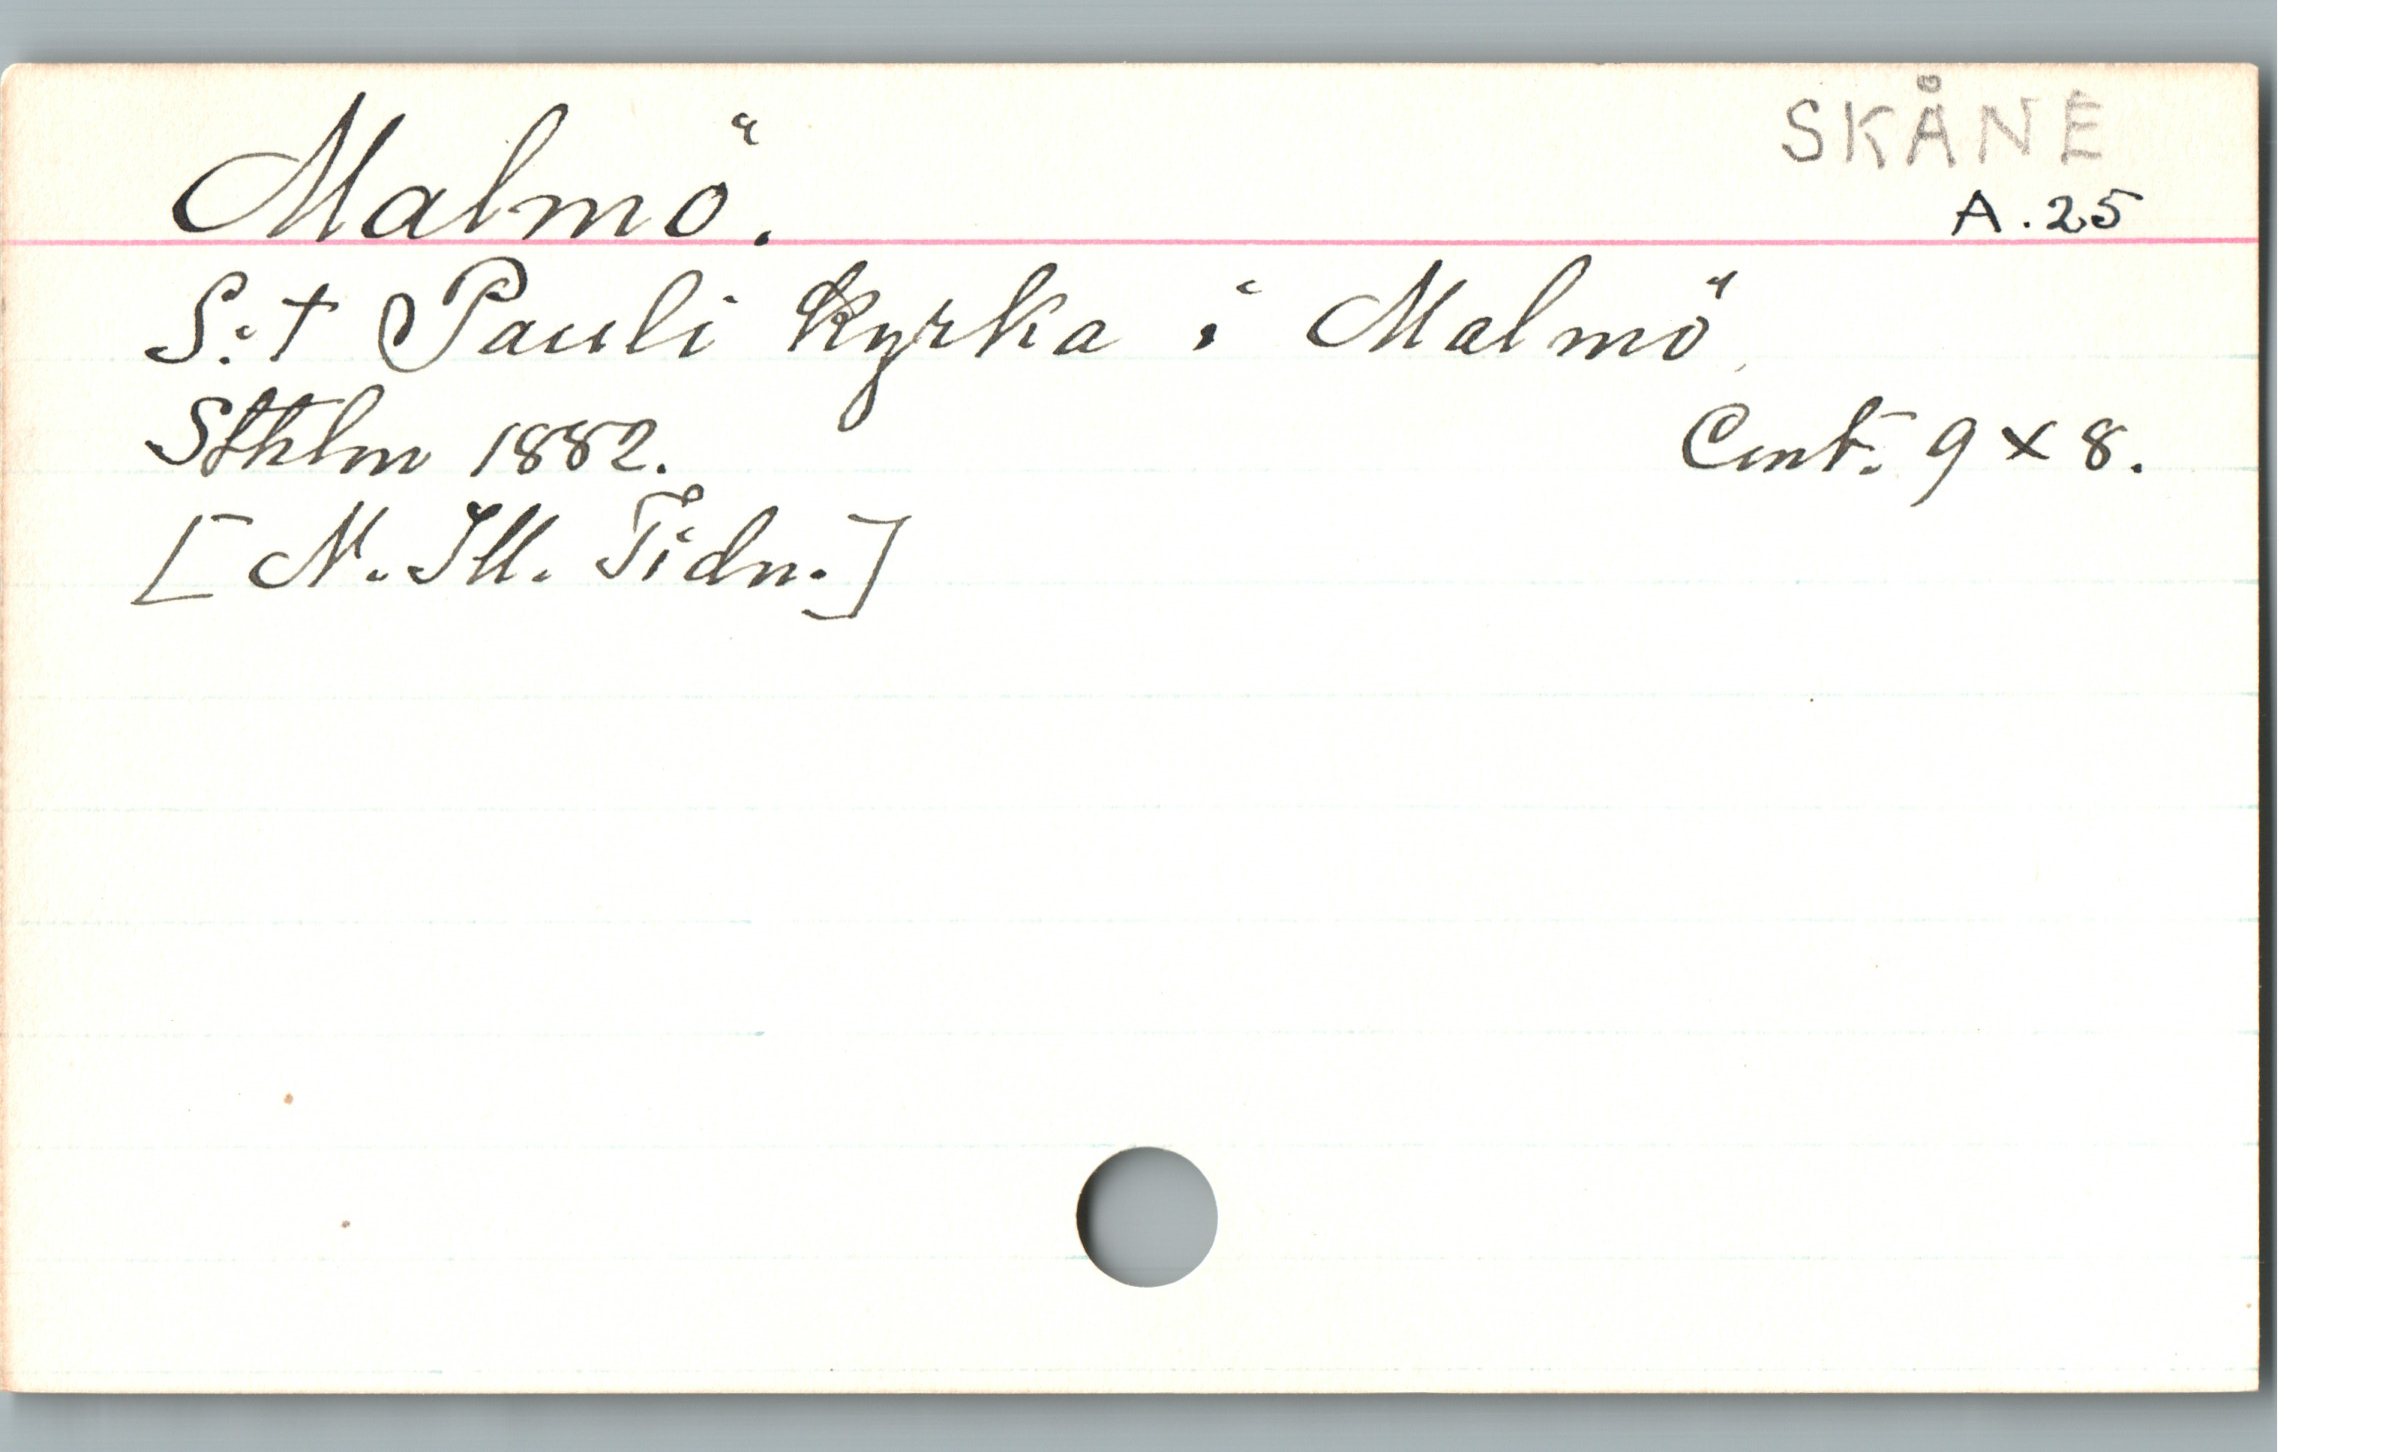 SKÅNE
Malmö.
A. 25
S:t Pauli kyrka i Malmö
Sthlm 1882.
Cent. 9 x 8.
[N. Ill. Tidn.]